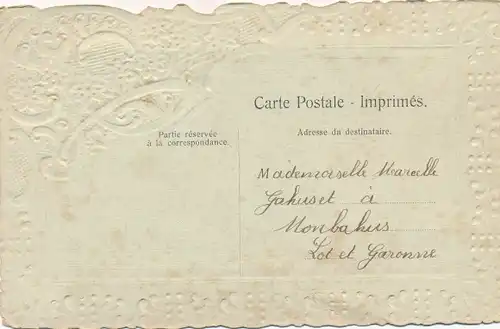 Carte Postale - Imprimés.
Partie réservée
à la correspondance.
Adresse du destinataire.
Mademoiselle Marcelle
Gahuset à
Monbahus
Lot et Garonne